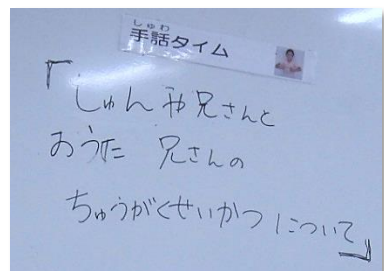 しゅわ
手話タイム
「しゅんや兄さんと
おうた 兄さんの
ちゅうがくせいかつ について」